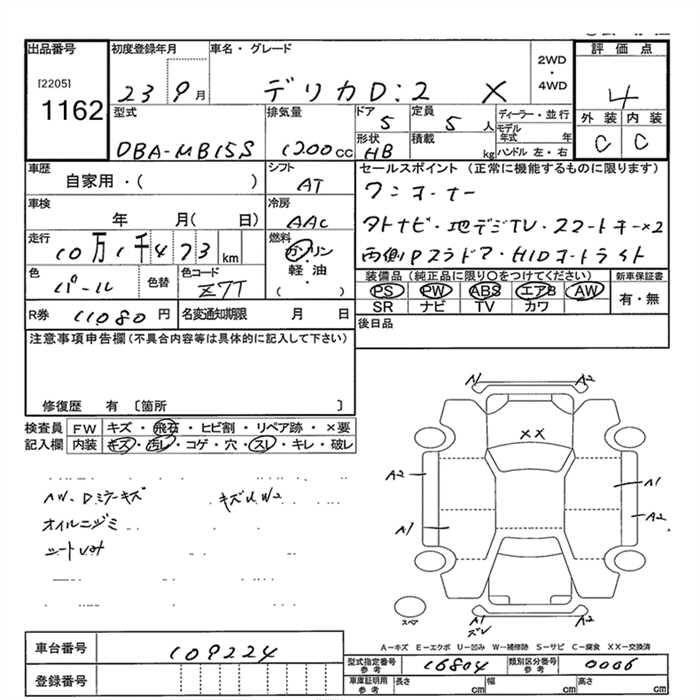 出品番号
[2205]
1162
初度登録年月
23 9月
車名・グレード
デリカD:2 X
2WD
・
4WD
評価点
4
外装 内装
C C
型式
DBA-MB15S
排気量
1200cc
ドア
5
定員
5人
形状
HB
積載
kg
ディーラー・並行
モデル年式 年
ハンドル 左・右
車歴
自家用・( )
シフト
AT
車検
年 月( 日)
冷房
AAC
走行
10万1千473km
燃料
ガソリン
軽油
・
( )
色
パール
色替
色コード
Z7T
R券 11080円
名変通知期限 月 日
セールスポイント (正常に機能するものに限ります)
ワンオーナー
タトナビ・地デジTV・スマートキー×2
両側Pスラドア・HIDオートライト
装備品(純正品に限り○をつけてください)
PS PW ABS エアB AW
SR ナビ TV カワ
新車保証書
有・無
後日品
注意事項申告欄(不具合内容等は具体的に記入して下さい)
修復歴 有 〔箇所 〕
検査員
記入欄
FW キズ・飛石・ヒビ割・リペア跡・×要
内装 キズ・汚レ・コゲ・穴・スレ・キレ・破レ
AW・Dミラーキズ
オイルニジミ
キズU W2
A1 A2
XX
A2
A1
A1
A2
スペア
A1
ズレ
A2
A-キズ E-エクボ U-凹み W-補修跡 S-サビ C-腐食 XX-交換済
車台番号 109224
登録番号
型式指定番号
参考
16804
類別区分番号
参考
0006
車庫証明用
参考
長さ cm 幅 cm 高さ cm